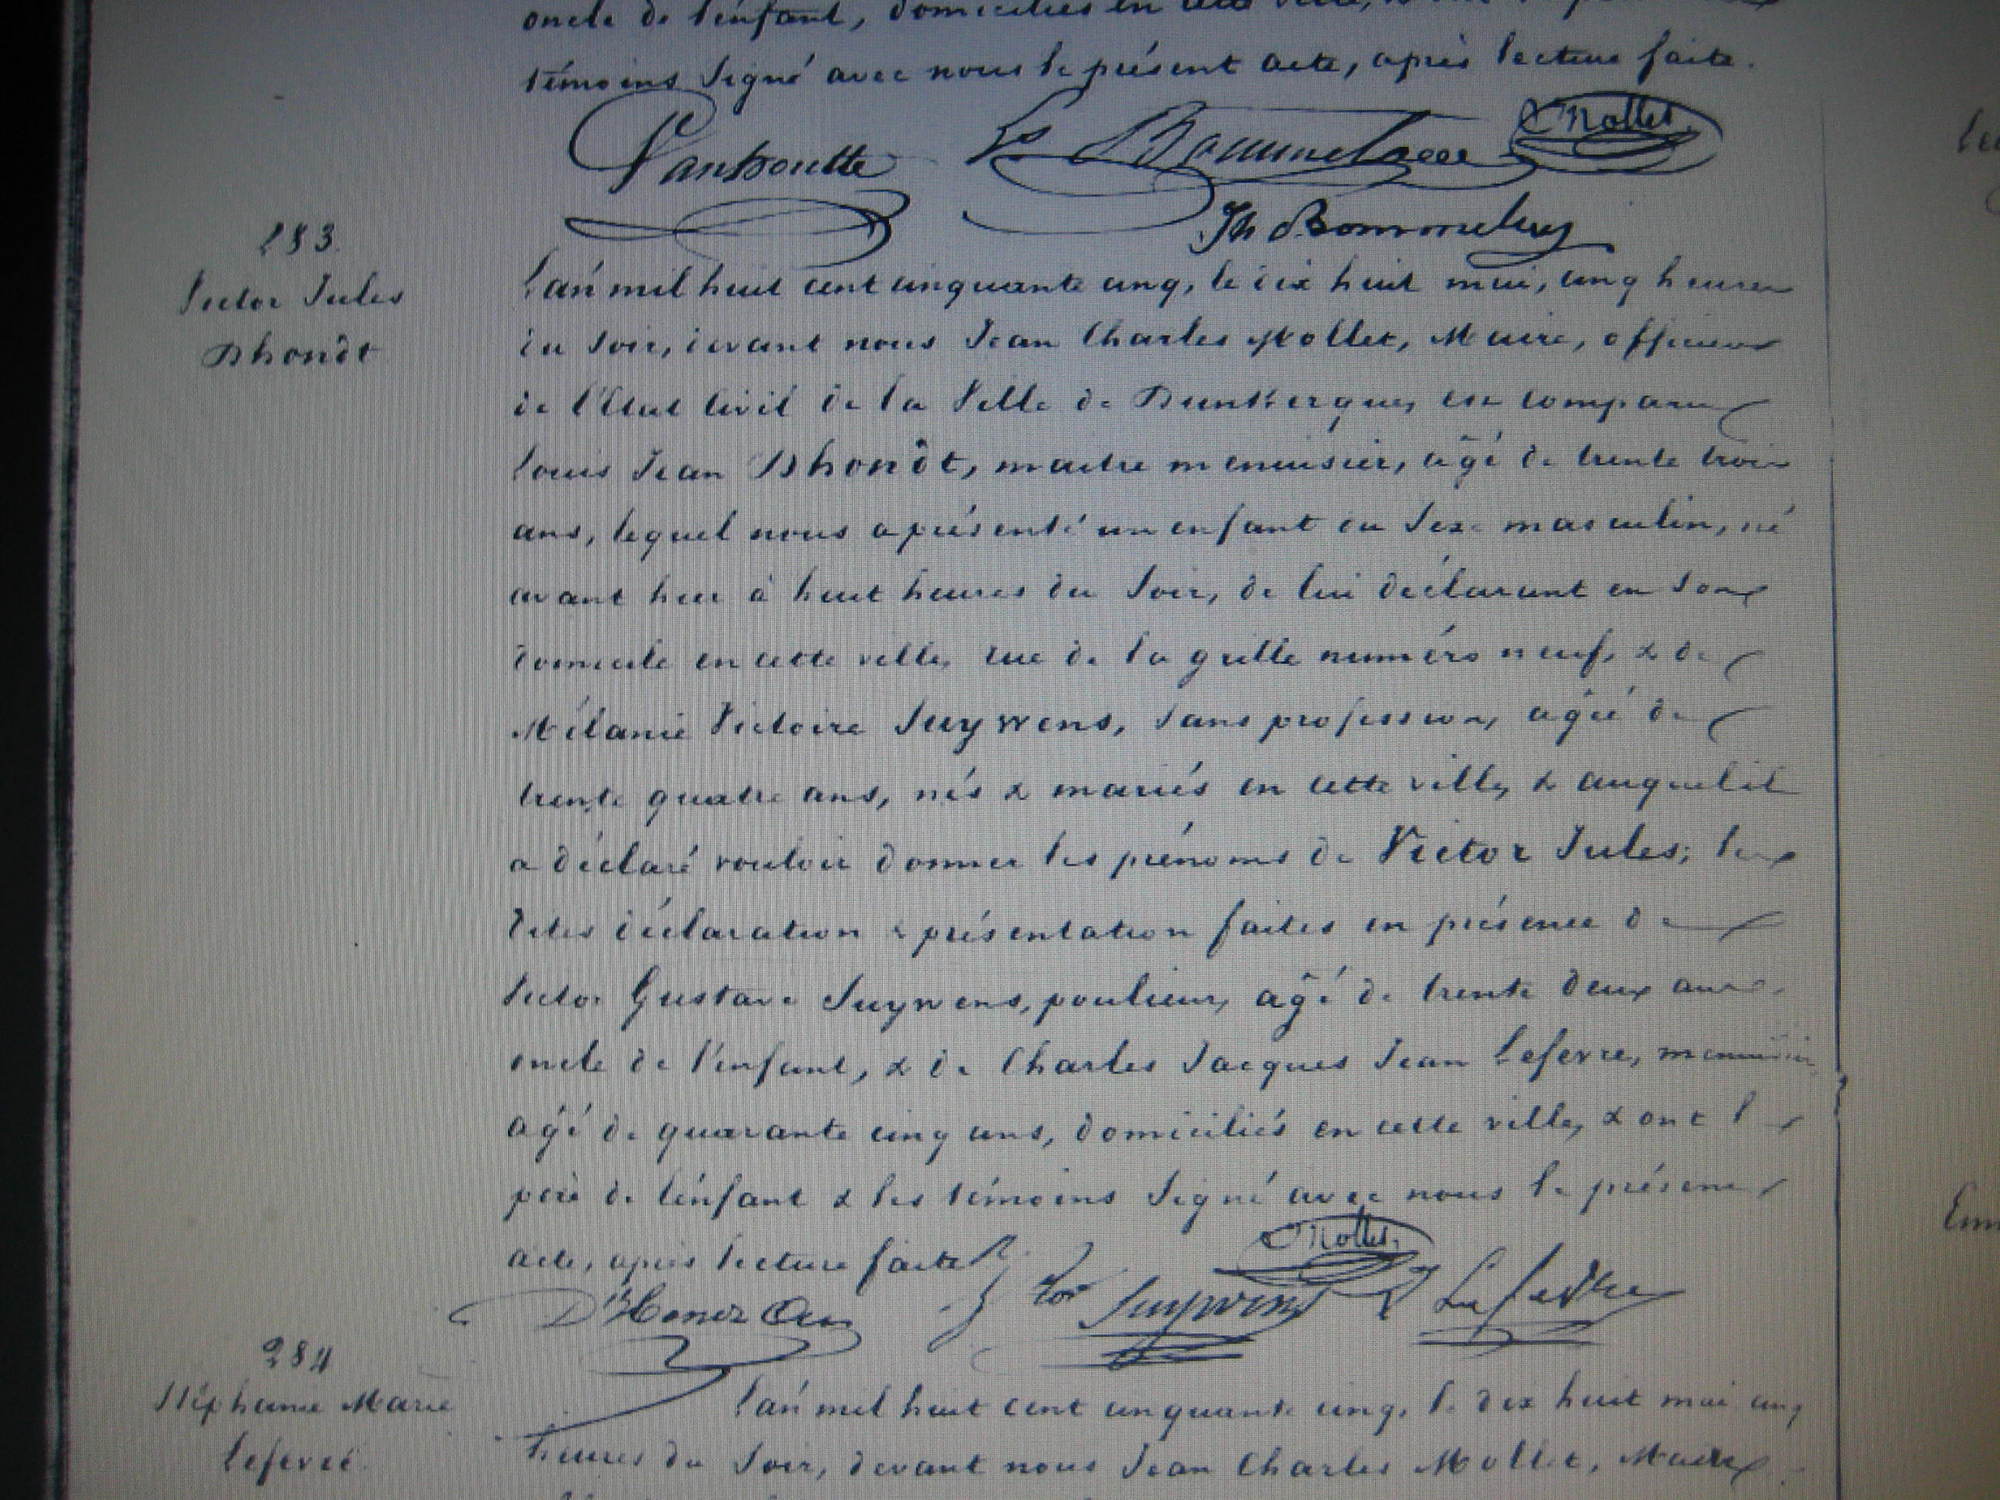 oncle de l'enfant, domiciliés en cette ville,
témoins signé avec nous le présent acte, après lecture faite.
Vanhoutte
Mollet
283.
Victor Jules
Dhondt
L'an mil huit cent cinquante cinq, le dix huit mai, cinq heures
du soir, devant nous Jean Charles Mollet, Maire, officier
de l'Etat Civil de la Ville de Dunkerque, est comparu
Louis Jean Dhondt, maitre menuisier, âgé de trente trois
ans, lequel nous a présenté un enfant du sexe masculin, né
avant hier à huit heures du soir, de lui déclarant en son
domicile en cette ville, rue de la grille numéro neuf, & de
Mélanie Victoire Suywens, sans profession, âgée de
trente quatre ans, nés & mariés en cette ville, & auquel il
a déclaré vouloir donner les prénoms de Victor Jules; les
dites déclaration & présentation faites en présence de
Victor Gustave Suywens, poulieur, âgé de trente deux ans
oncle de l'enfant, & de Charles Jacques Jean Lefevre, menuisier
âgé de quarante cinq ans, domiciliés en cette ville, & ont le
père de l'enfant & les témoins signé avec nous le présent
acte, après lecture faite
Mollet
Suywens
284
Stéphanie Marie
Lefevre
L'an mil huit cent cinquante cinq, le dix huit mai cinq
heures du soir, devant nous Jean Charles Mollet, Maire